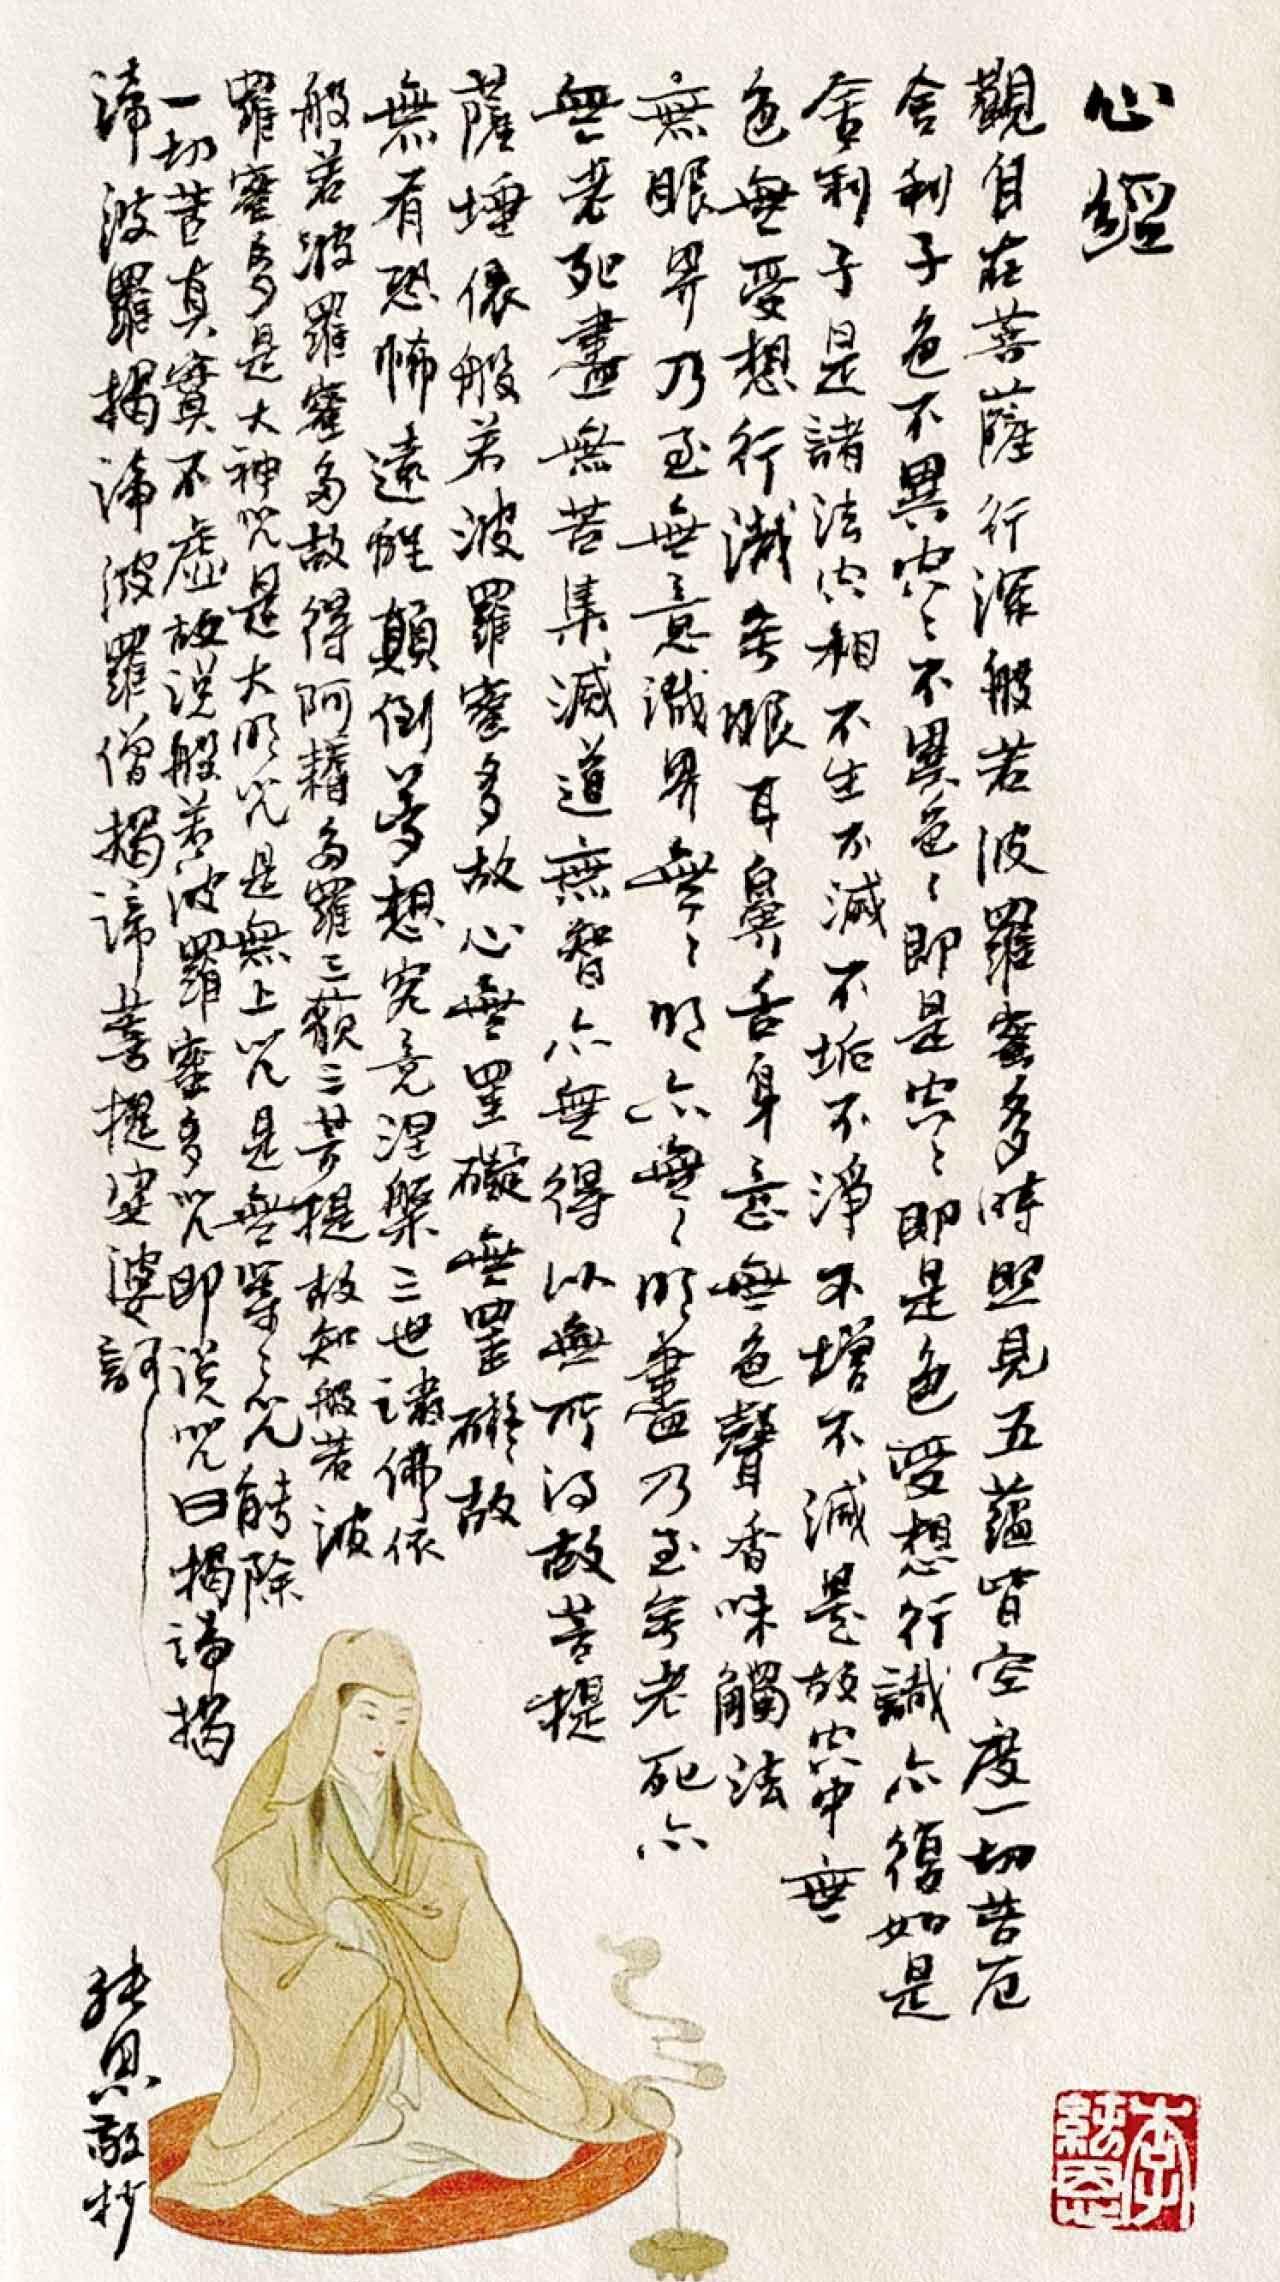 心經
觀自在菩薩行深般若波羅蜜多時照見五蘊皆空度一切苦厄
舍利子色不異空〻不異色〻即是空〻即是色受想行識亦復如是
舍利子是諸法空相不生不滅不垢不淨不增不減是故空中無
色無受想行識無眼耳鼻舌身意無色聲香味觸法
無眼界乃至無意識界無〻明亦無〻明盡乃至無老死亦
無老死盡無苦集滅道無智亦無得以無所得故菩提
薩埵依般若波羅蜜多故心無罣礙無罣礙故
無有恐怖遠離顛倒夢想究竟涅槃三世諸佛依
般若波羅蜜多故得阿耨多羅三藐三菩提故知般若波
羅蜜多是大神咒是大明咒是無上咒是無等〻咒能除
一切苦真實不虛故說般若波羅蜜多咒即說咒曰揭諦揭
諦波羅揭諦波羅僧揭諦菩提娑婆訶
純恩敬抄
李純恩